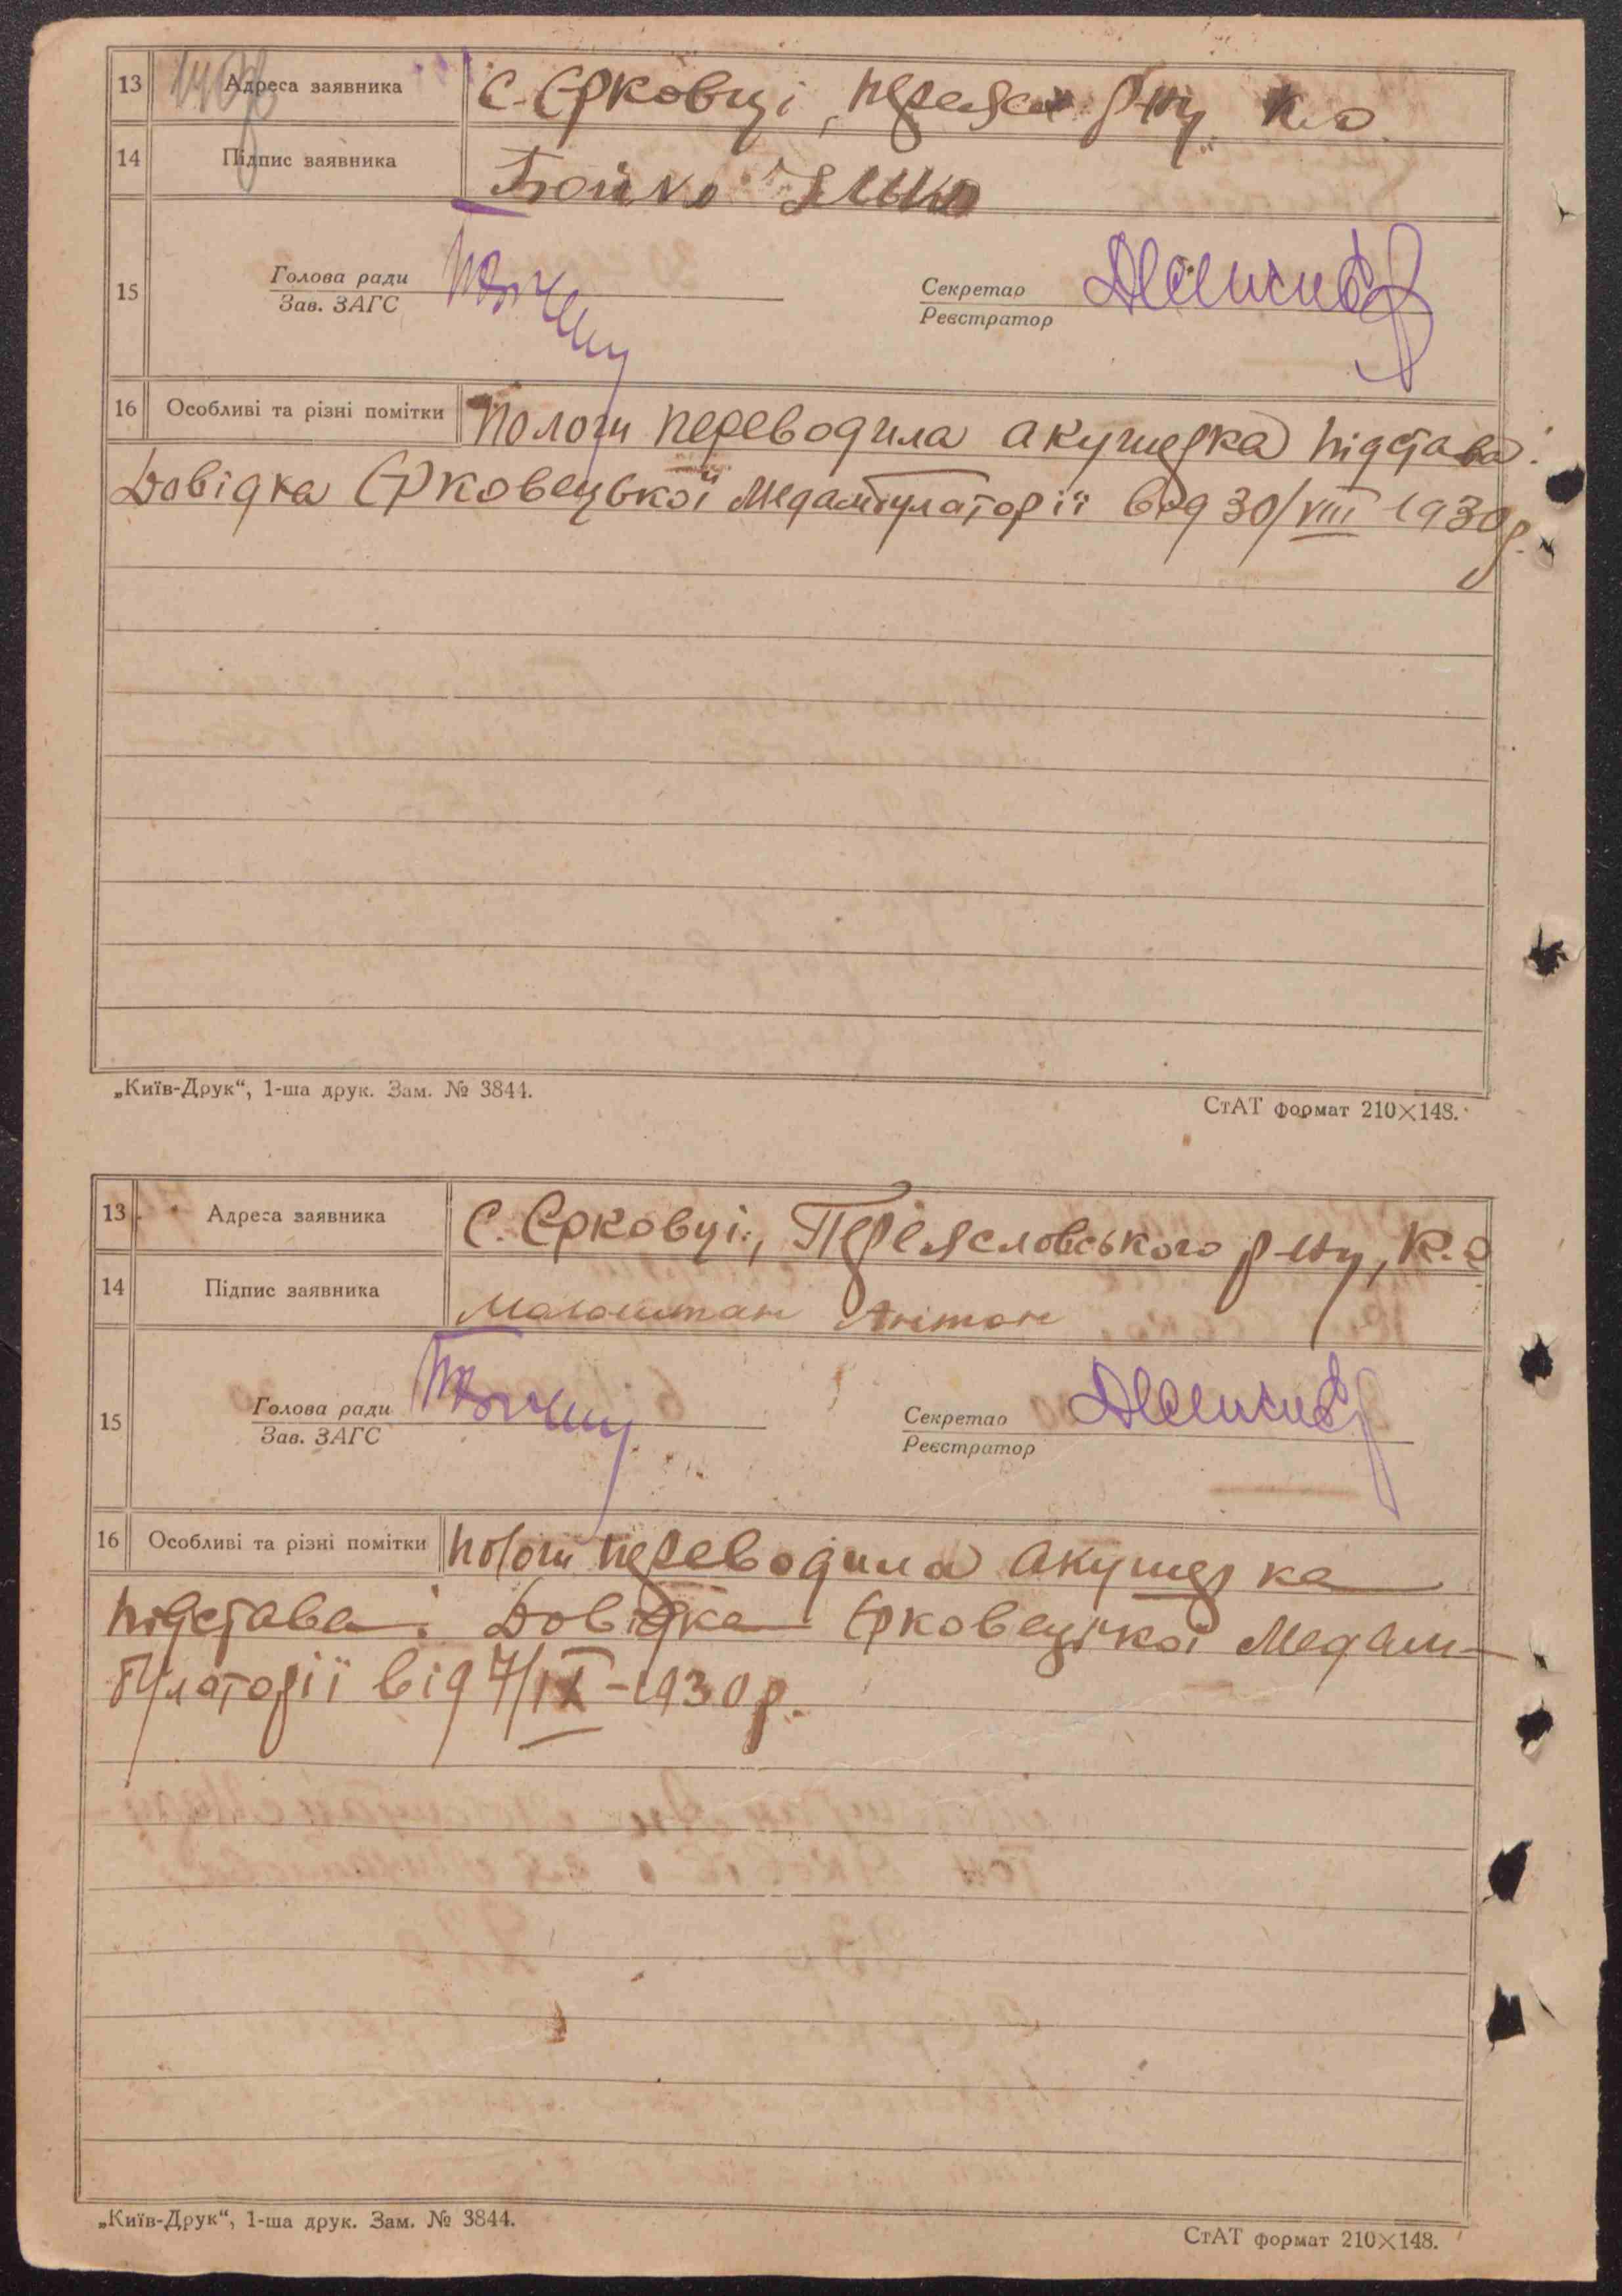 13 Адреса заявника С. Єрковці, Переяс. р-ну К.О.
14 Підпис заявника Бойко Ілько
15 Голова ради Секретар
Зав. ЗАГС Реєстратор
16 Особливі та різні помітки Пологи переводила акушерка підстава:
Довідка Єрковецької Медамбулаторії від 30/VIII 1930 р.
„Київ-Друк“, 1-ша друк. Зам. № 3844.
СтАТ формат 210×148.
13 Адреса заявника С. Єрковці, Переясловського р-ну, К.О
14 Підпис заявника Малоштан Антон
15 Голова ради Секретар
Зав. ЗАГС Реєстратор
16 Особливі та різні помітки Пологи переводила акушерка
підстава: Довідка Єрковецької Медам-
булаторії від 7/IX-1930 р.
„Київ-Друк“, 1-ша друк. Зам. № 3844.
СтАТ формат 210×148.